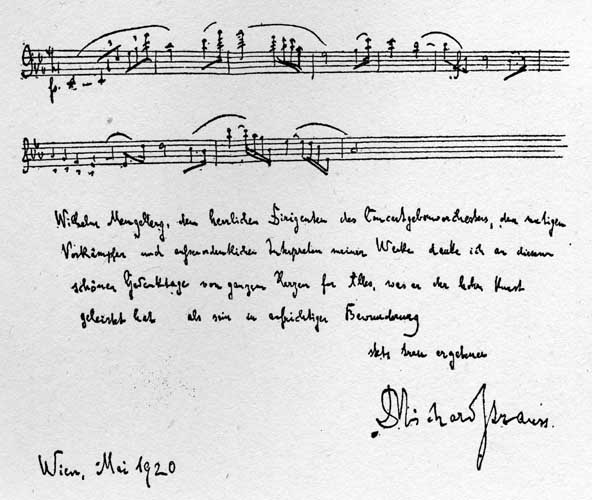 Wilhelm Mengelberg, dem herrlichen Dirigenten des Concertgebouworchesters, dem mutigen
Vorkämpfer und Interpreten meiner Werke danke ich an diesem
schönen Gedenktage von ganzem Herzen für Alles, was er der hohen Kunst
geleistet hat als sein in aufrichtiger Bewunderung
stets treu ergebener
Dr Richard Strauss.
Wien, Mai 1920